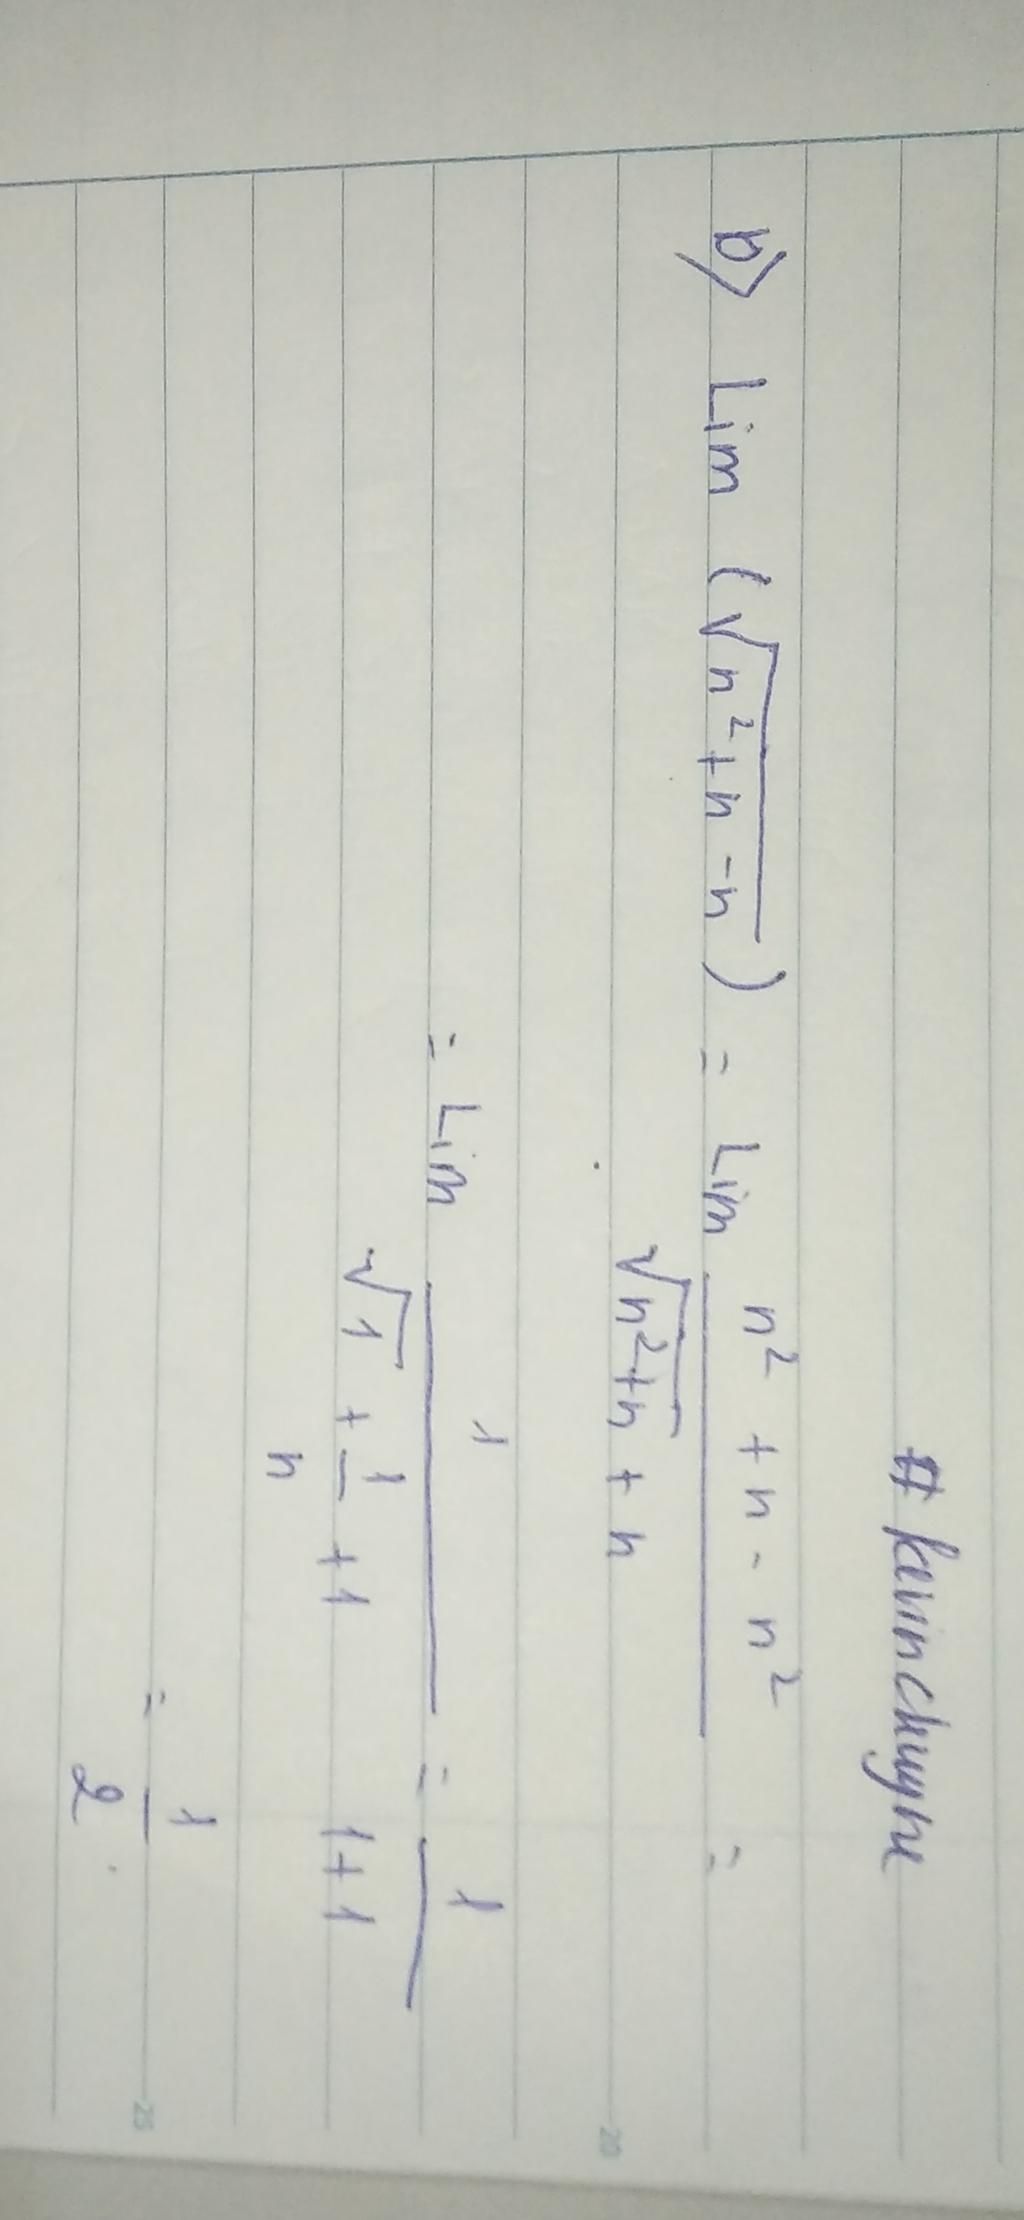 # kevinchuyne
b) Lim (√n²+n-n) = Lim n² + n - n² / √n²+n + n =
= Lim 1 / √1 + 1/n + 1 = 1 / 1+1
= 1/2
20
25